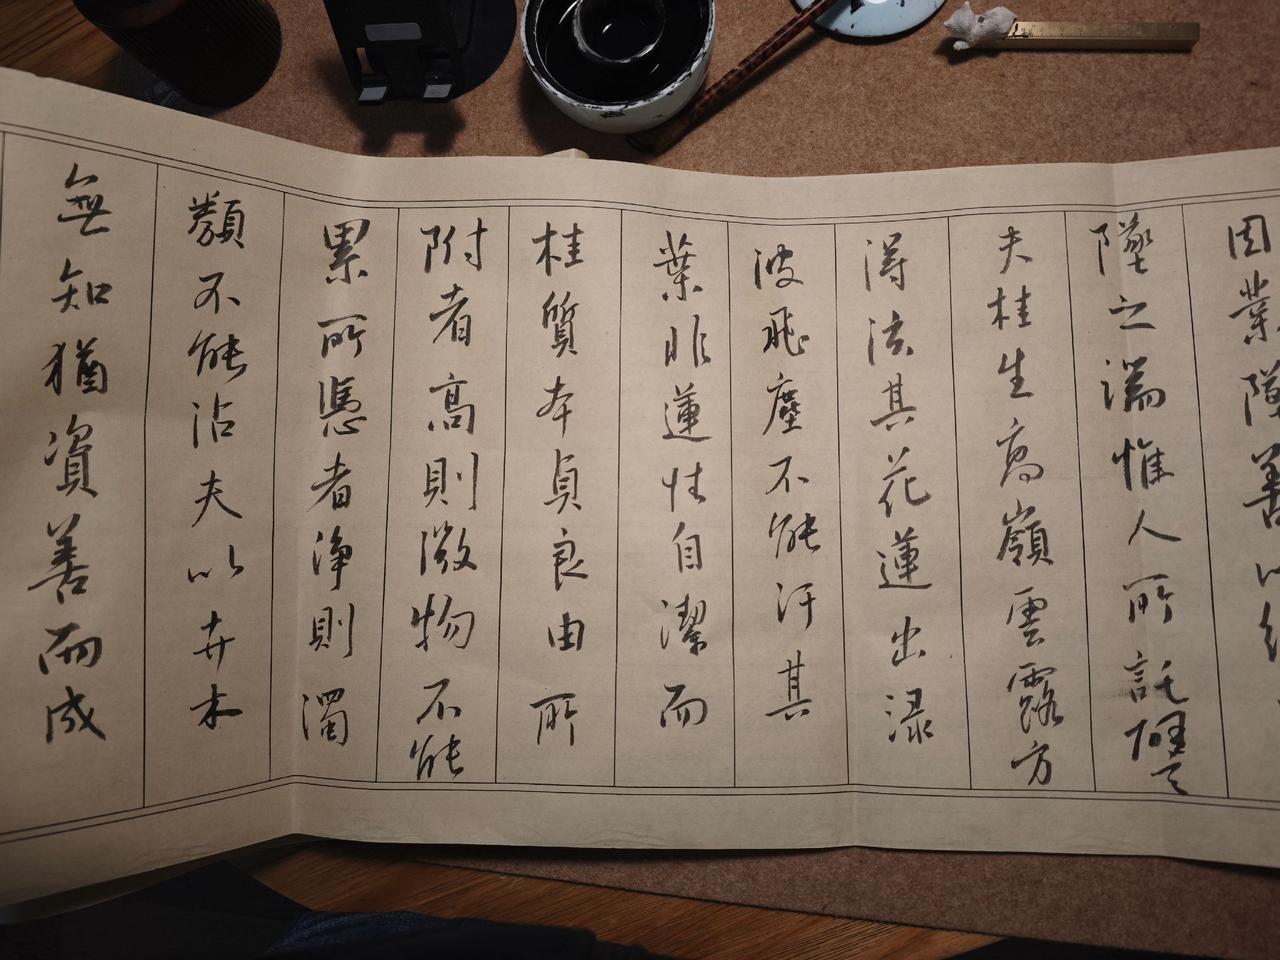 因業墜善以
墜之端惟人所託譬
夫桂生高嶺雲露方
得泫其花蓮出淥
波飛塵不能汙其
葉非蓮性自潔而
桂質本貞良由所
附者高則微物不能
累所憑者淨則濁
類不能沾夫以卉木
無知猶資善而成